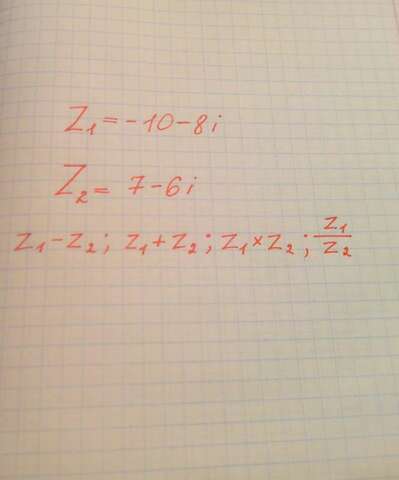 Z₁ = -10 - 8i
Z₂ = 7 - 6i
Z₁ - Z₂ ; Z₁ + Z₂ ; Z₁ × Z₂ ; Z₁/Z₂